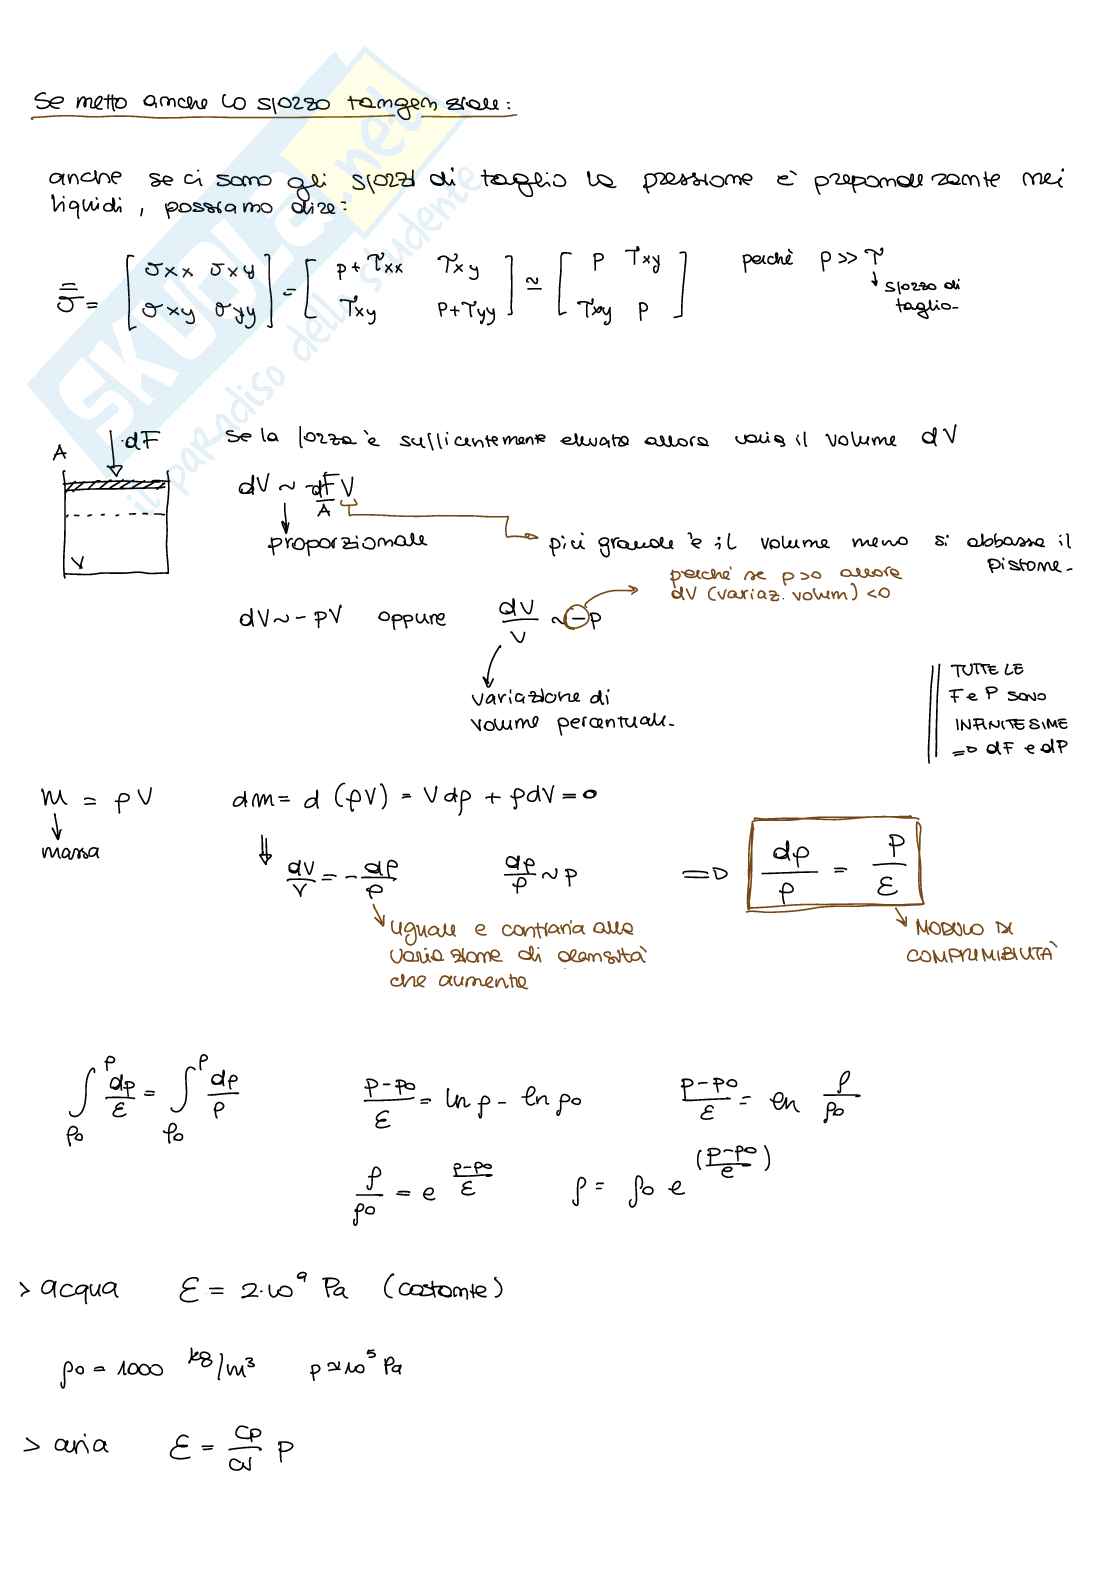 Se metto anche lo sforzo tangenziale:
anche se ci sono gli sforzi di taglio la pressione è preponderante nei
liquidi, possiamo dire:
σ̿ = [σxx σxy; σxy σyy] = [p+τxx τxy; τxy p+τyy] ≃ [p τxy; τxy p] perchè p >> τ
↓ sforzo di
taglio-
A ↓ dF Se la forza è sufficientemente elevata allora varia il volume dV
dV ~ dF/A V
proporzionale più grande è il volume meno si abbassa il
pistone-
V
perchè se p>0 allora
dV (variaz. volum) <0
dV ~ - pV oppure dV/V ~ - p
variazione di
volume percentuale-
TUTTE LE
F e P SONO
INFINITESIME
=> dF e dP
m = ρV dm = d (ρV) = Vdρ + ρdV = 0
massa
⇓ dV/V = - dρ/ρ dρ/ρ ~ p => dρ/ρ = P/ε
uguale e contraria alla
variazione di densità
che aumenta
MODULO DI
COMPRIMIBILITÀ
∫p0^p dp/ε = ∫ρ0^ρ dρ/ρ p-p0/ε = ln ρ - ln ρ0 p-p0/ε = ln ρ/ρ0
ρ/ρ0 = e^(p-p0/ε) ρ = ρ0 e^(p-p0/e)
> acqua ε = 2·10⁹ Pa (costante)
ρ0 = 1000 kg/m³ p≃10⁵ Pa
> aria ε = cp/cv p
SKUOLA.net
il paradiso dello studente